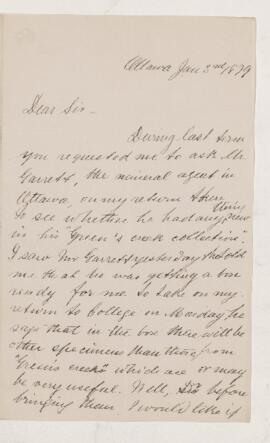 Ottawa Jan 3rd 1879
Dear Sir -
During last term
you requested me to ask Mr.
Garrett, the mineral agent in
Ottawa, on my return there
to see whether he had any
in his "Green's creek collection".
I saw Mr Garrett yesterday he told
me that he was getting a box
ready for me to take on my
return to College on Monday, he
says that in the box there will be
other specimens than those from
"Green's creek" which are or may
be very useful. Well, Sir before
bringing them, I would like if